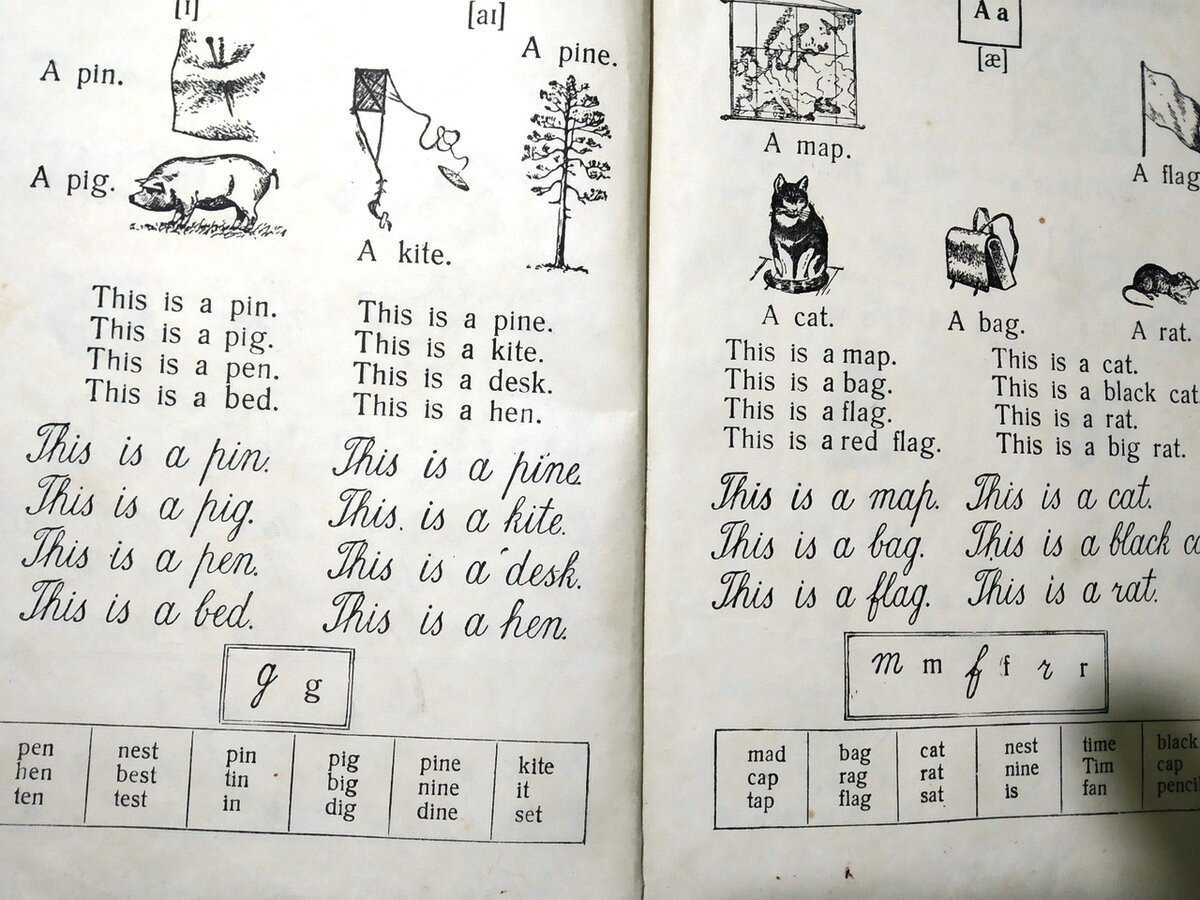 [ɪ] [aɪ]
A pine.
A pin.
A pig.
A kite.
This is a pin.
This is a pig.
This is a pen.
This is a bed.
This is a pine.
This is a kite.
This is a desk.
This is a hen.
This is a pin.
This is a pig.
This is a pen.
This is a bed.
This is a pine.
This is a kite.
This is a desk.
This is a hen.
g g
pen nest pin pig pine kite
hen best tin big nine it
ten test in dig dine set
A a
[æ]
A map.
A flag
A cat.
A bag.
A rat.
This is a map.
This is a bag.
This is a flag.
This is a red flag.
This is a cat.
This is a black cat
This is a rat.
This is a big rat.
This is a map.
This is a bag.
This is a flag.
This is a cat.
This is a black
This is a rat.
m m f f r r
mad bag cat nest time black
cap rag rat nine Tim cap
tap flag sat is fan pencil